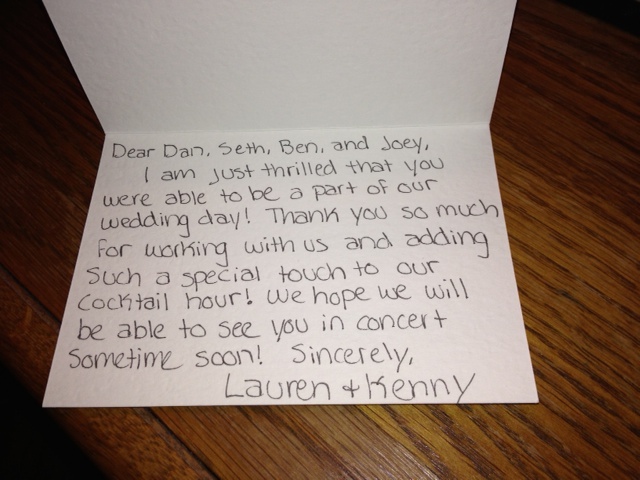 Dear Dan, Seth, Ben, and Joey,
I am just thrilled that you
were able to be a part of our
wedding day! Thank you so much
for working with us and adding
such a special touch to our
cocktail hour! We hope we will
be able to see you in concert
sometime soon! Sincerely,
Lauren + Kenny